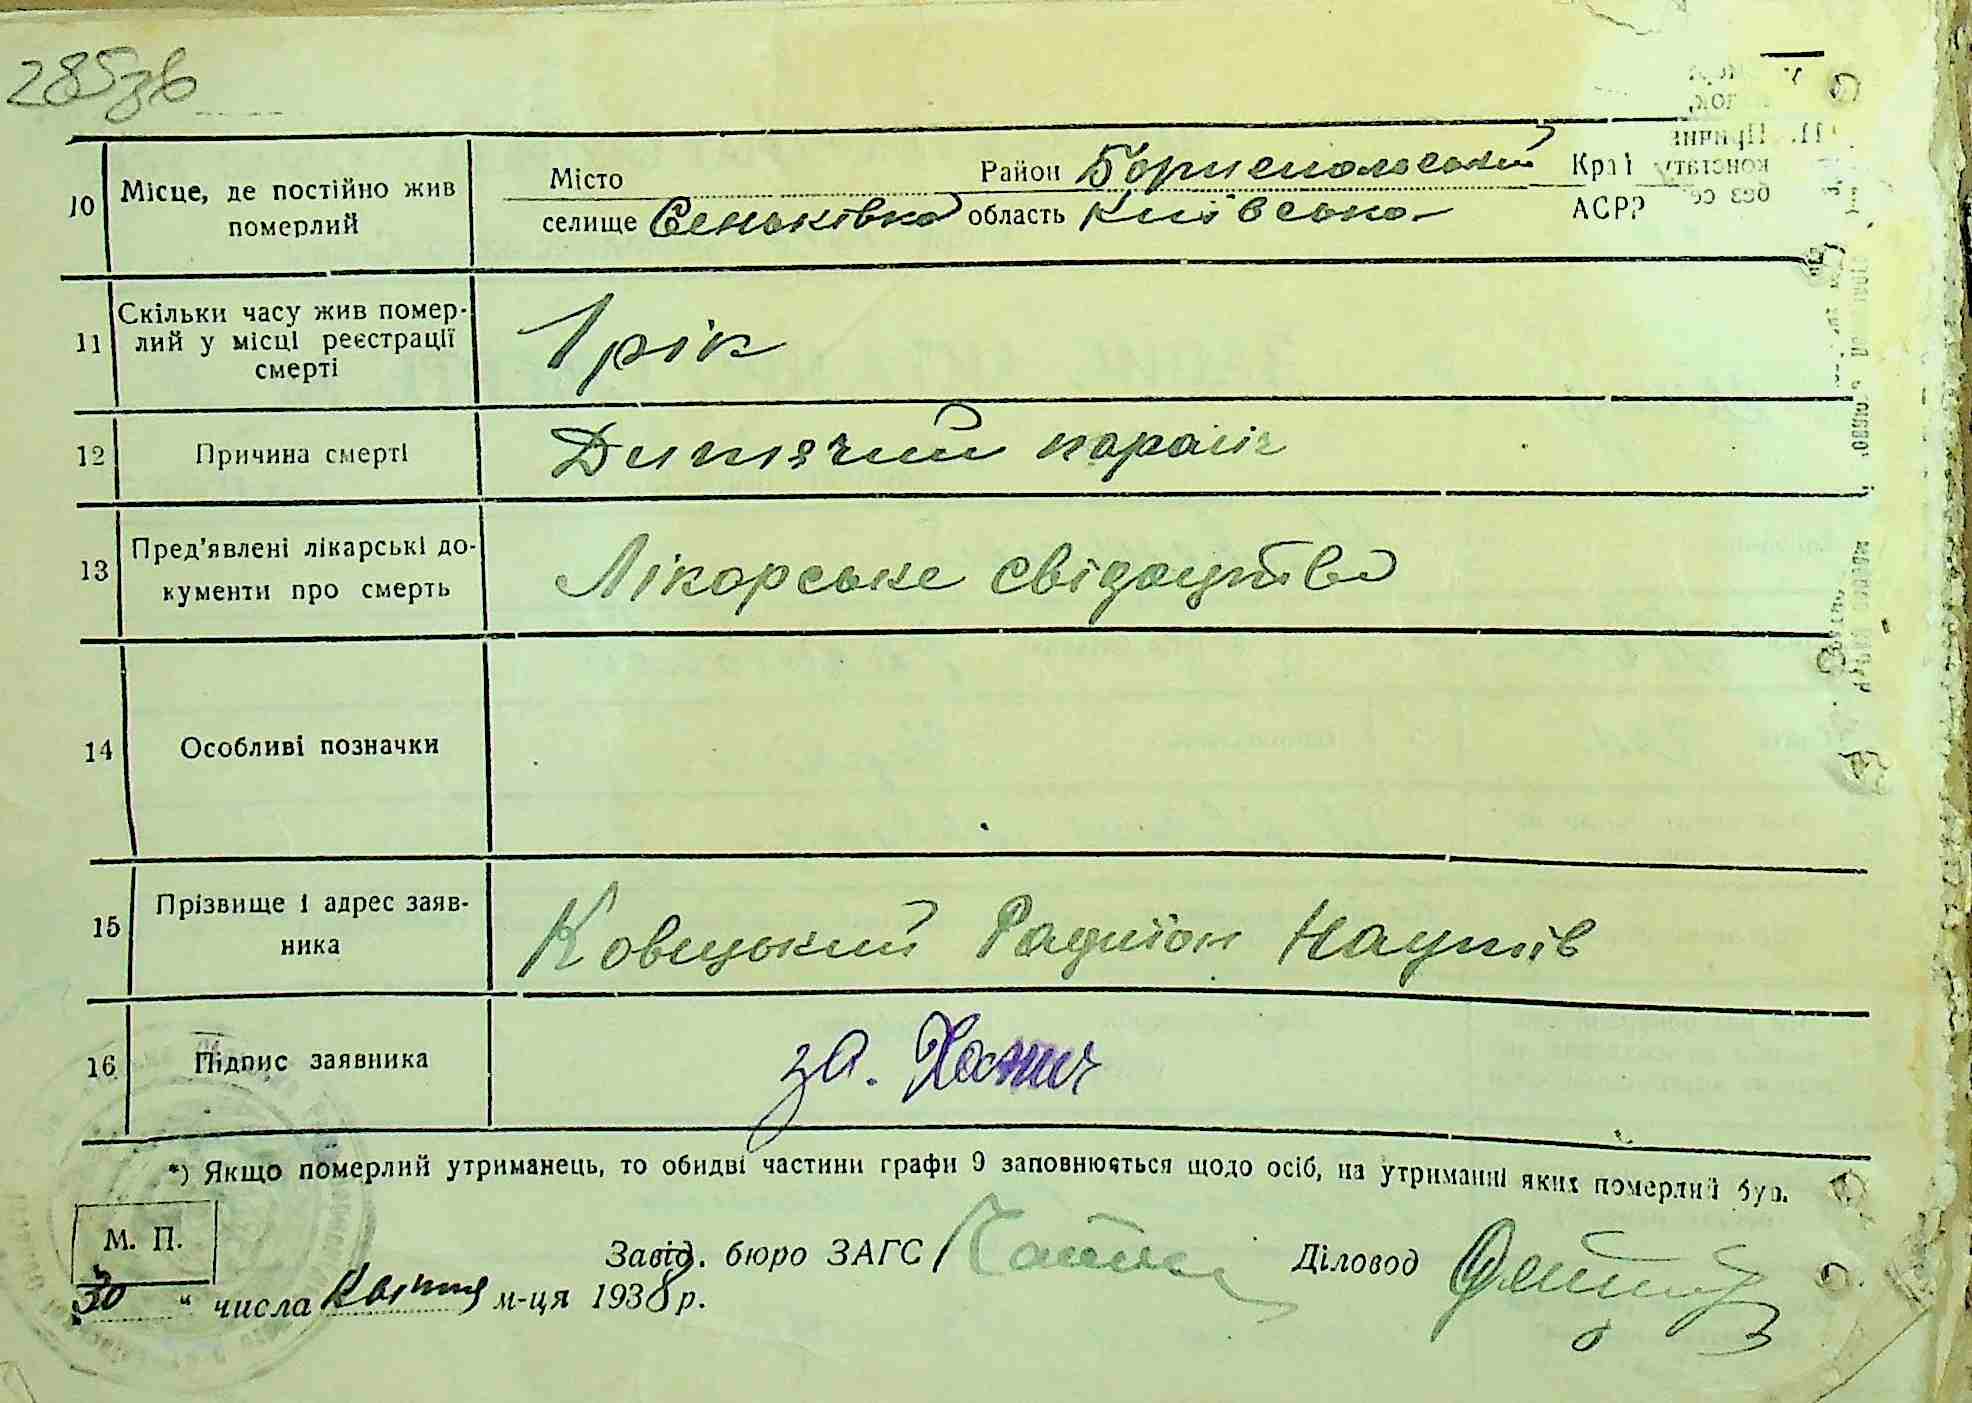 285зв
10 Місце, де постійно жив померлий
Місто Район Бориспольський Край
селище Сеньківка область Київська АСРР
11 Скільки часу жив помер-
лий у місці реєстрації
смерті
1 рік
12 Причина смерті
Дитячий параліч
13 Пред'явлені лікарські до-
кументи про смерть
Лікарське свідоцтво
14 Особливі позначки
15 Прізвище і адрес заяв-
ника
Ковецький Радиіон Наумів
16 Підпис заявника
за.
*) Якщо померлий утриманець, то обидві частини графи 9 заповнюється щодо осіб, на утриманні яких померлий був.
М. П.
Завід. бюро ЗАГС Діловод
30 " числа Квітня м-ця 1938 р.